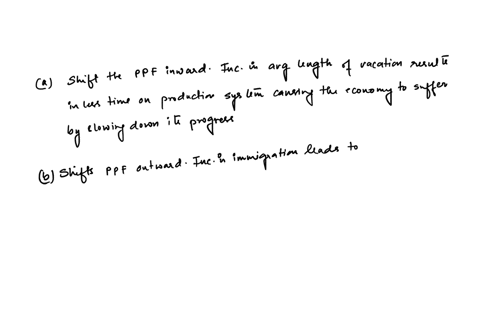 (a) Shift the PPF inward. Inc. in avg length of vacation results
in less time on production system causing the economy to suffer
by slowing down its progress
(b) Shifts PPF outward. Inc. in immigration leads to